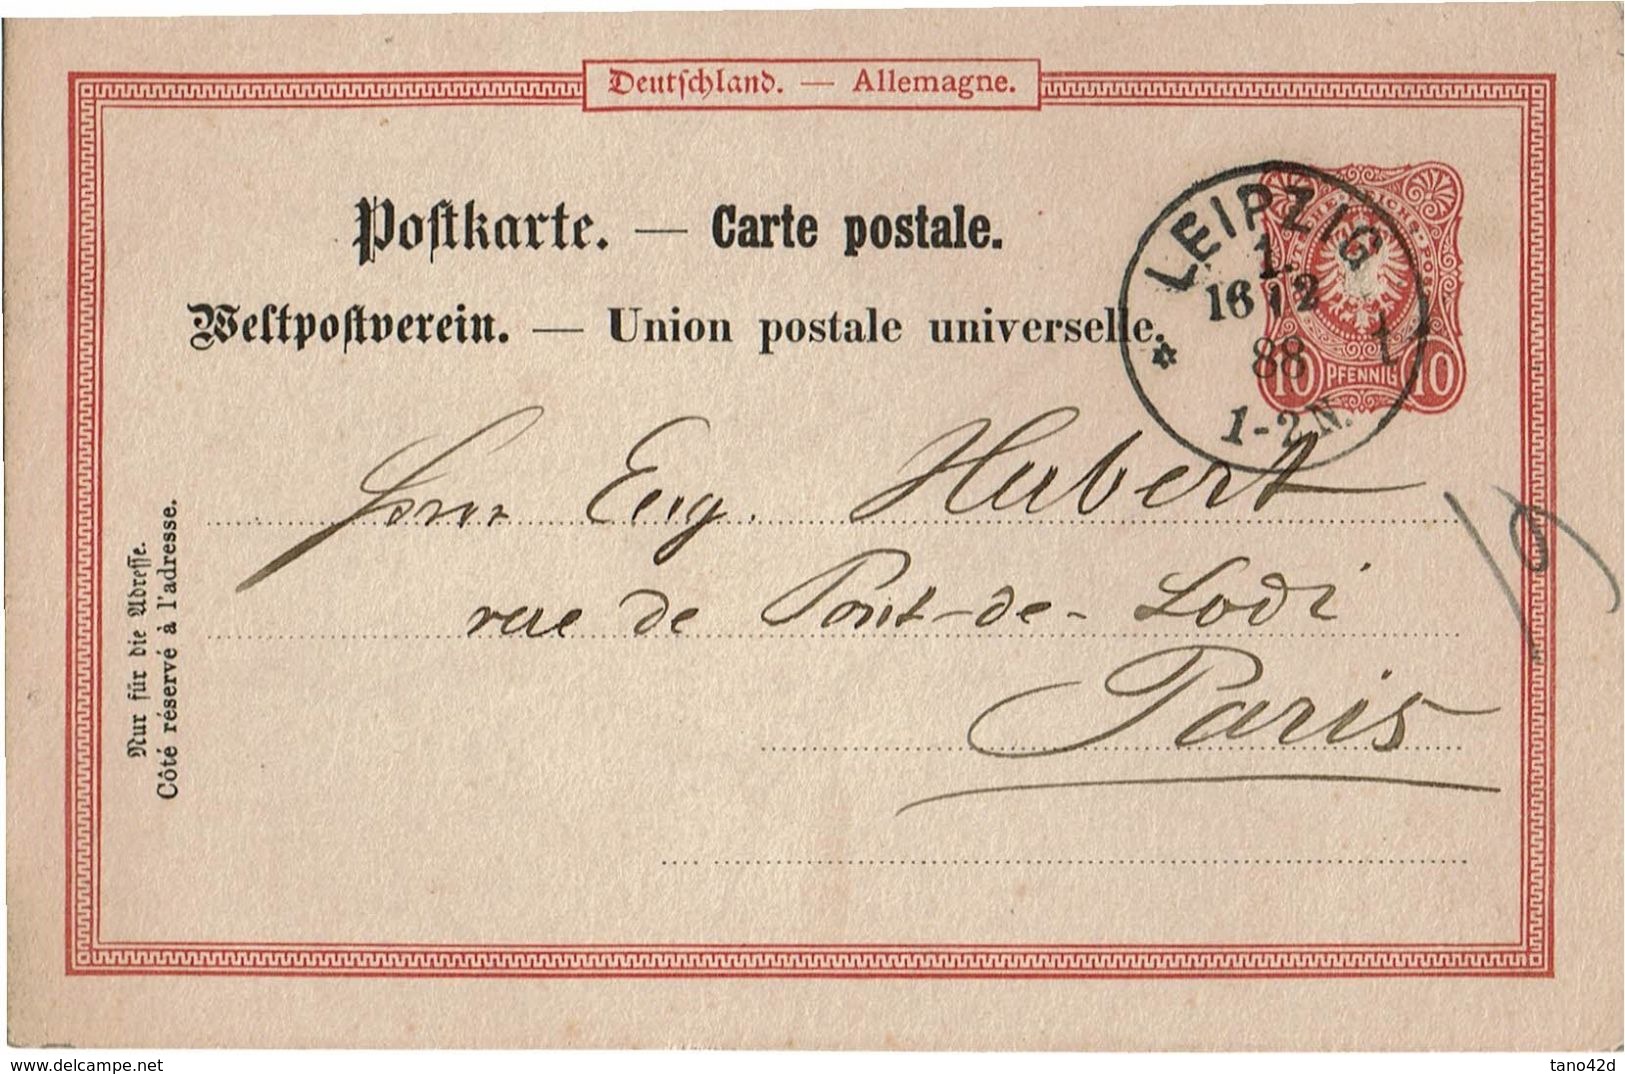 Deutschland. — Allemagne.
Postkarte. — Carte postale.
Weltpostverein. — Union postale universelle.
LEIPZIG
1.
16 12
88
1-2 N.
10 PFENNIG 10
Nur für die Adresse.
Côté réservé à l'adresse.
Herrn Eug. Hubert
rue de Pont-de-Lodi
Paris
delcampe.net
tano42d